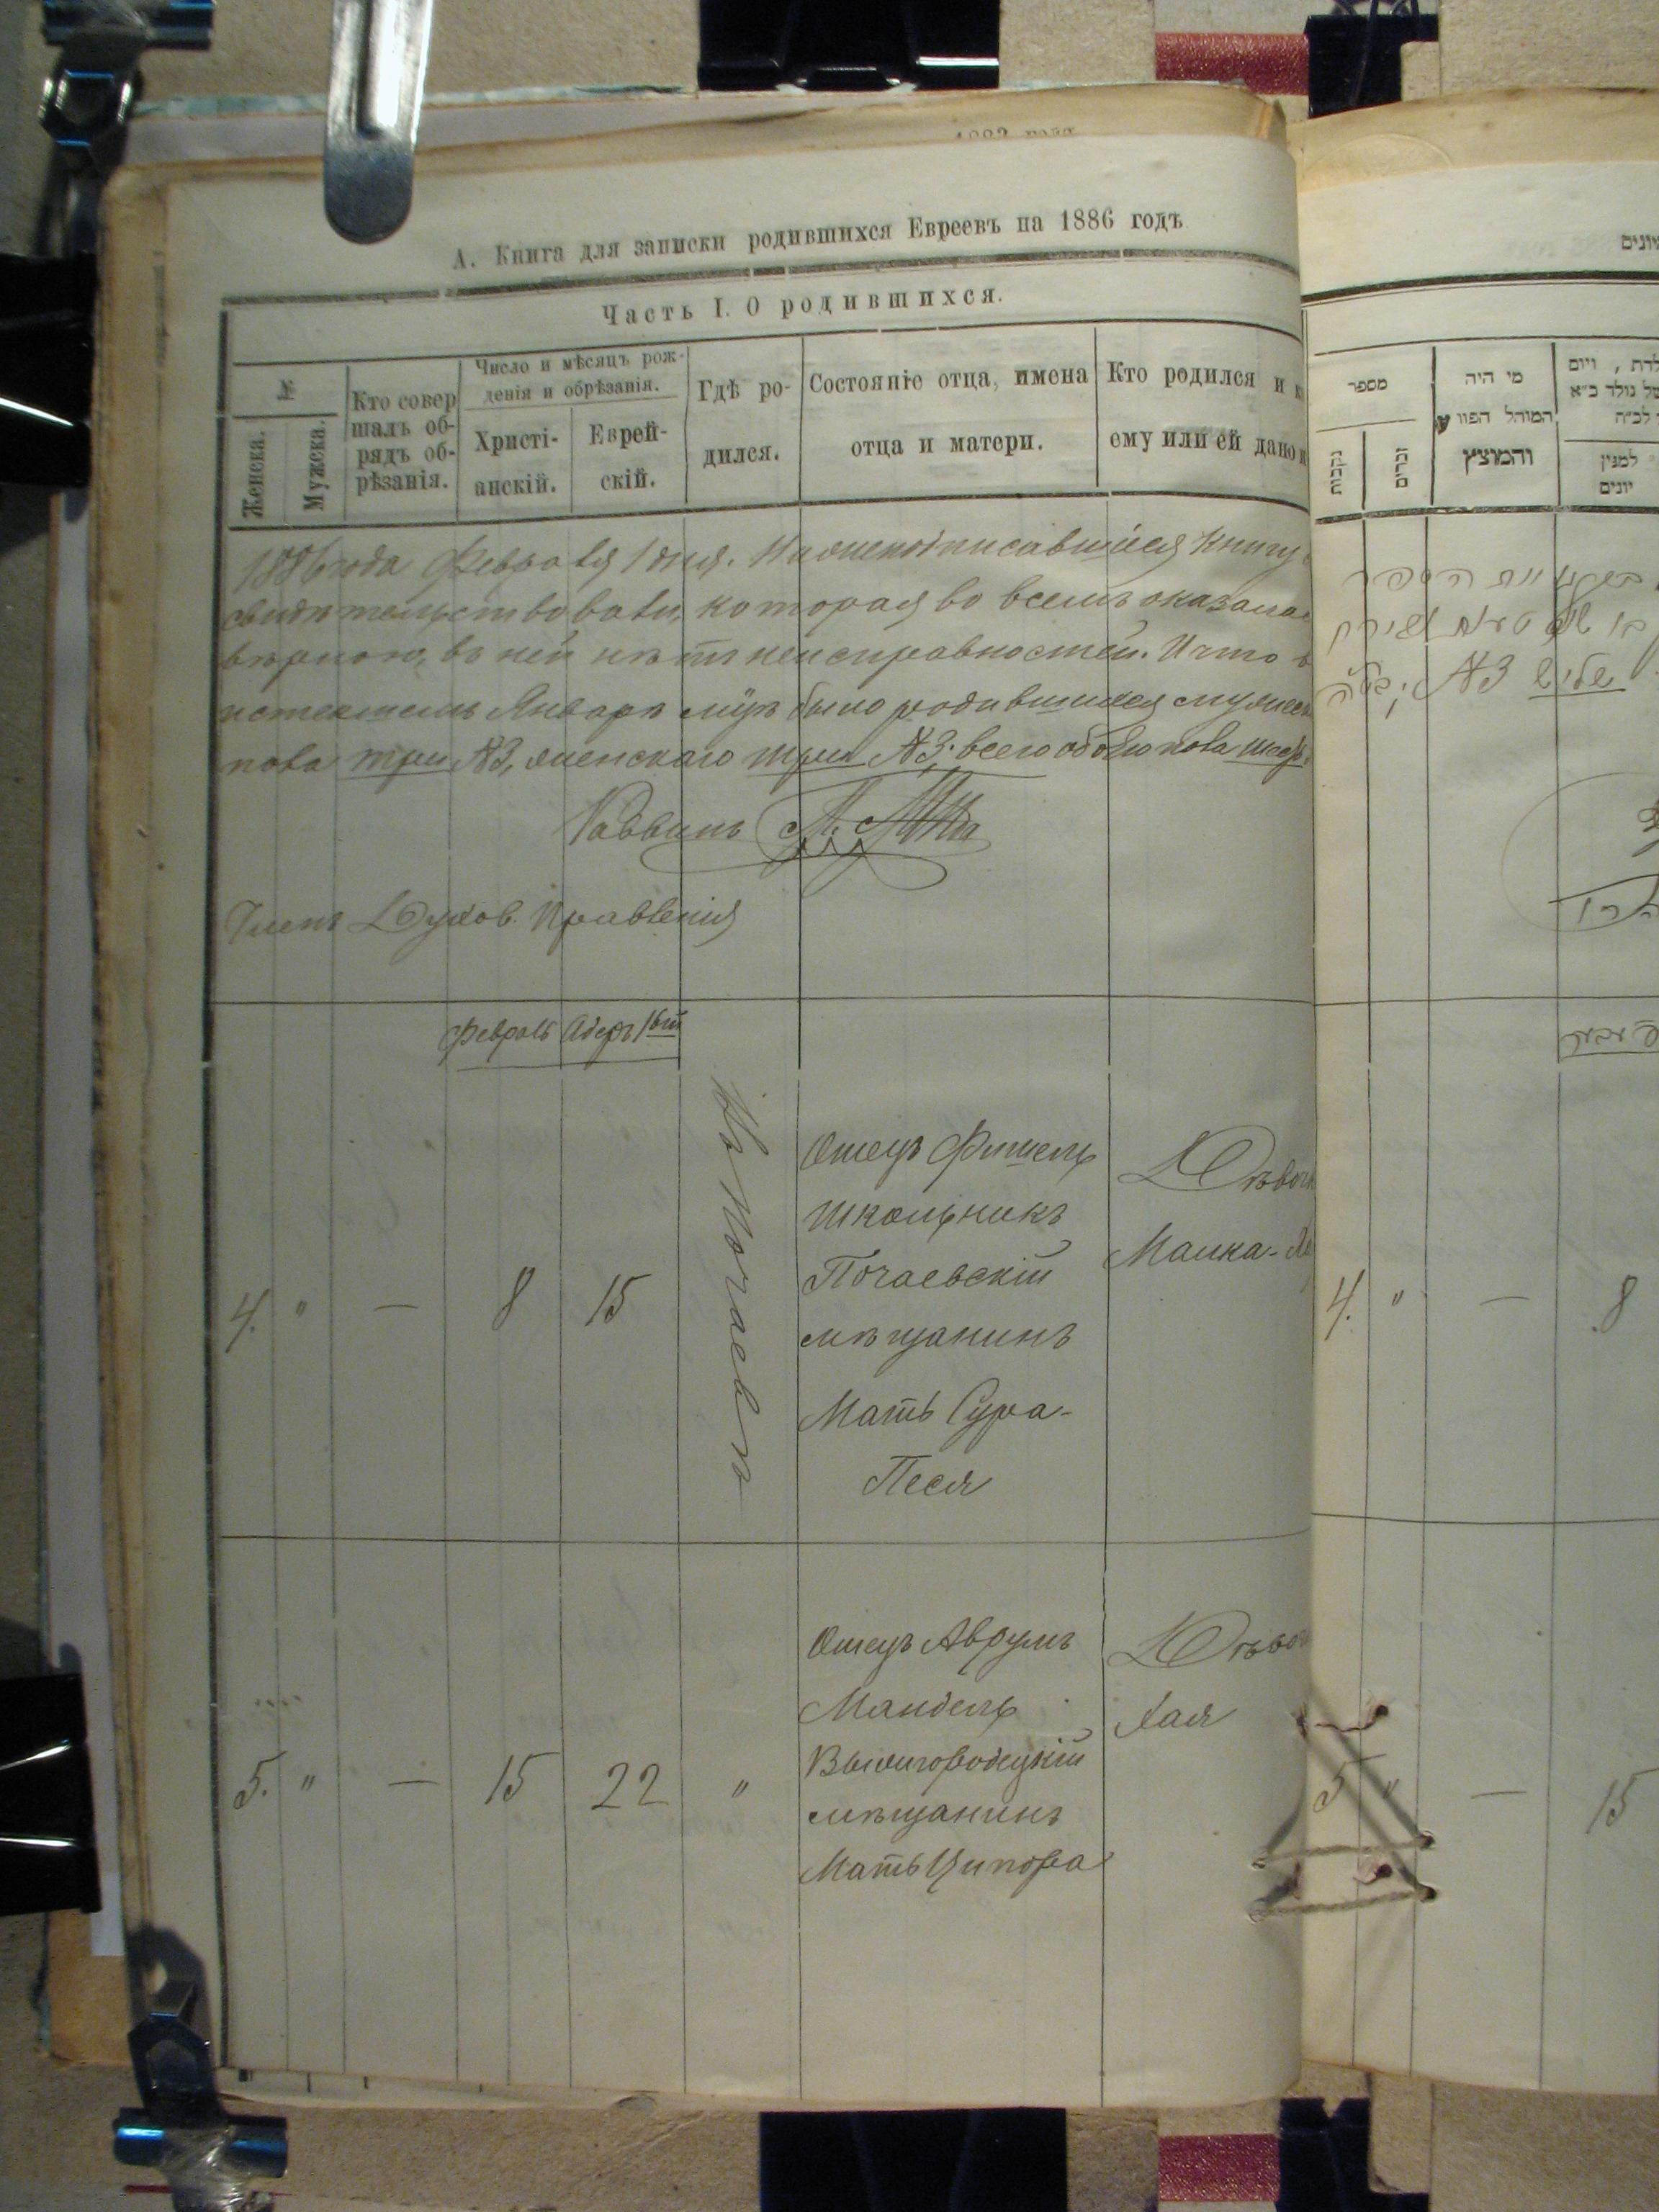 А. Книга для записки родившихся Евреевъ на 1886 годъ
Часть I. О родившихся.
№
Женска.
Мужска.
Кто совер
шалъ об-
рядъ об-
рѣзанія.
Число и мѣсяцъ рож-
денія и обрѣзанія.
Христі-
анскій.
Еврей-
скій.
Гдѣ ро-
дился.
Состояніе отца, имена
отца и матери.
Кто родился и
ему или ей дано
1886 года Февраля 1 дня. Нижеподписавшіеся книгу
свидѣтельствовали, которая во всемъ оказалас
вѣрною, въ ней нѣтъ неисправностей. И что в
истекшемъ Январѣ м-цѣ было родившихся мужеск
пола три №3, женскаго три №3; всего обоего пола шесть
Раввинъ
Членъ Духов. Правленія
Февраль Адеръ 1вый
4. " — 8 15
Въ Почаевѣ
Отецъ Фишель
Школьникъ
Почаевскій
мѣщанинъ
Мать Сура-
Песя
Дѣвочк
Малка-
5. " — 15 22 "
Отецъ Аврумъ
Мандель
Вышгородецкій
мѣщанинъ
Мать Ципора
Дѣвоч
Хая
מספר
נקבות
זכרים
מי היה
המוהל הפורע
והמוצץ
למנין
יונים
№3
4. " — 8
5 " — 15